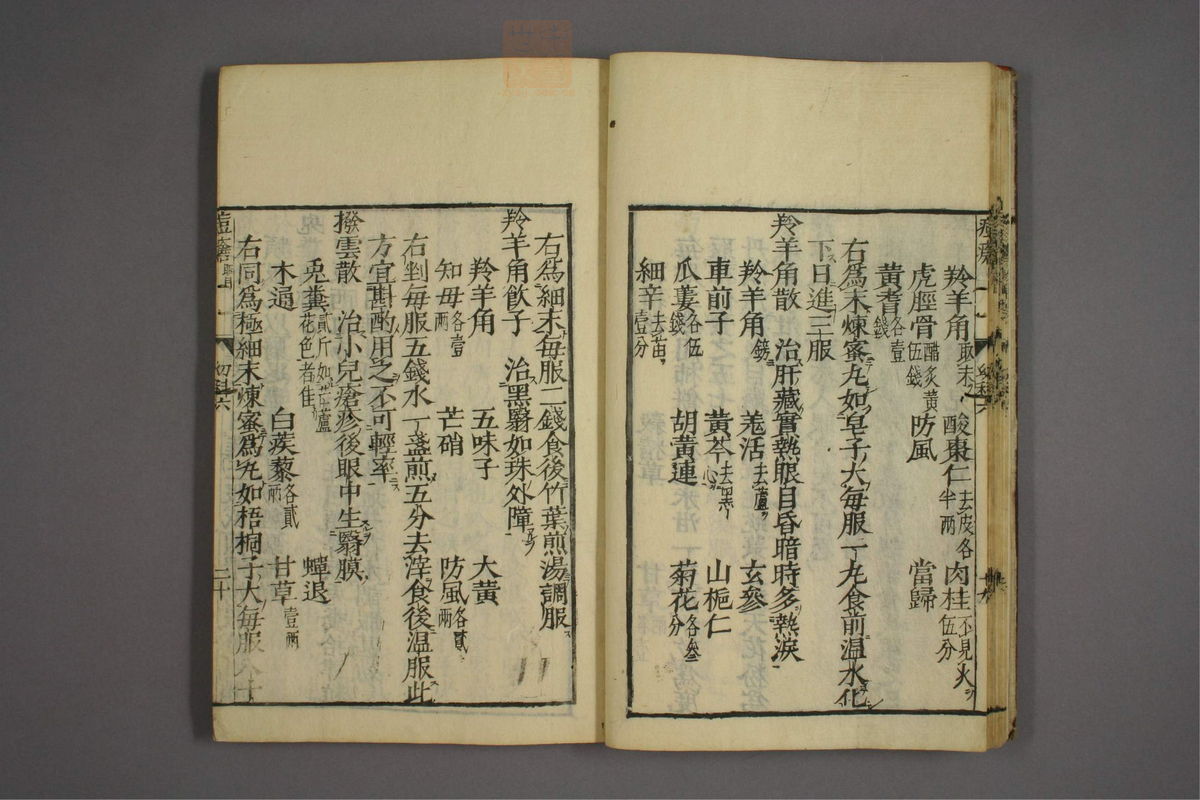 羚羊角取末 酸棗仁去皮各半兩 肉桂不見火伍分
虎脛骨醋炙黃伍錢 防風 當歸
黃耆各壹錢
右爲末煉蜜丸如皁子大每服一丸食前温水化
下日進三服
羚羊角散 治肝藏實熱眼目昏暗時多熱淚
羚羊角鎊 羗活去蘆 玄參
車前子 黃芩去黑心 山梔仁
瓜蔞各伍錢 胡黃連 菊花各叄分
細辛去苗壹分
右爲細末每服二錢食後竹葉煎湯調服
羚羊角飲子 治黑翳如珠外障
羚羊角 五味子 大黃
知母各壹兩 芒硝 防風各貳兩
右剉每服五錢水一盞煎五分去滓食後温服此
方宜斟酌用之不可輕率
撥雲散 治小兒瘡疹後眼中生翳膜
兎糞貳斤如芒蘆花色者佳 蟬退
木通 白蒺藜各貳兩 甘草壹兩
右同爲極細末煉蜜爲丸如梧桐子大每服
痘瘡 眼目 幼科六 二十